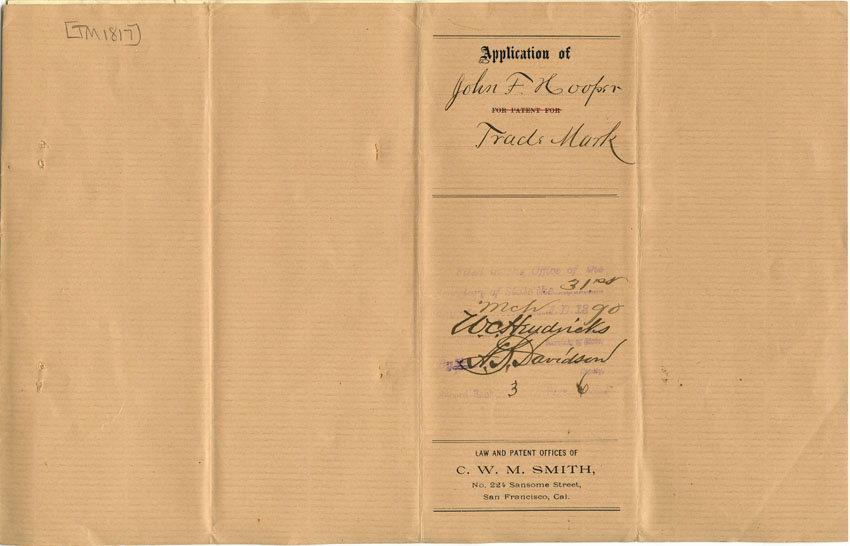 [TM1817]
Application of
John F. Hooper
FOR PATENT FOR
Trade Mark
Filed in the Office of the
of State the 31st
Mch A.D. 18 90
W.C. Hendricks
Secretary of State
A. J. Davidson
3 6
LAW AND PATENT OFFICES OF
C. W. M. SMITH,
No. 224 Sansome Street,
San Francisco, Cal.